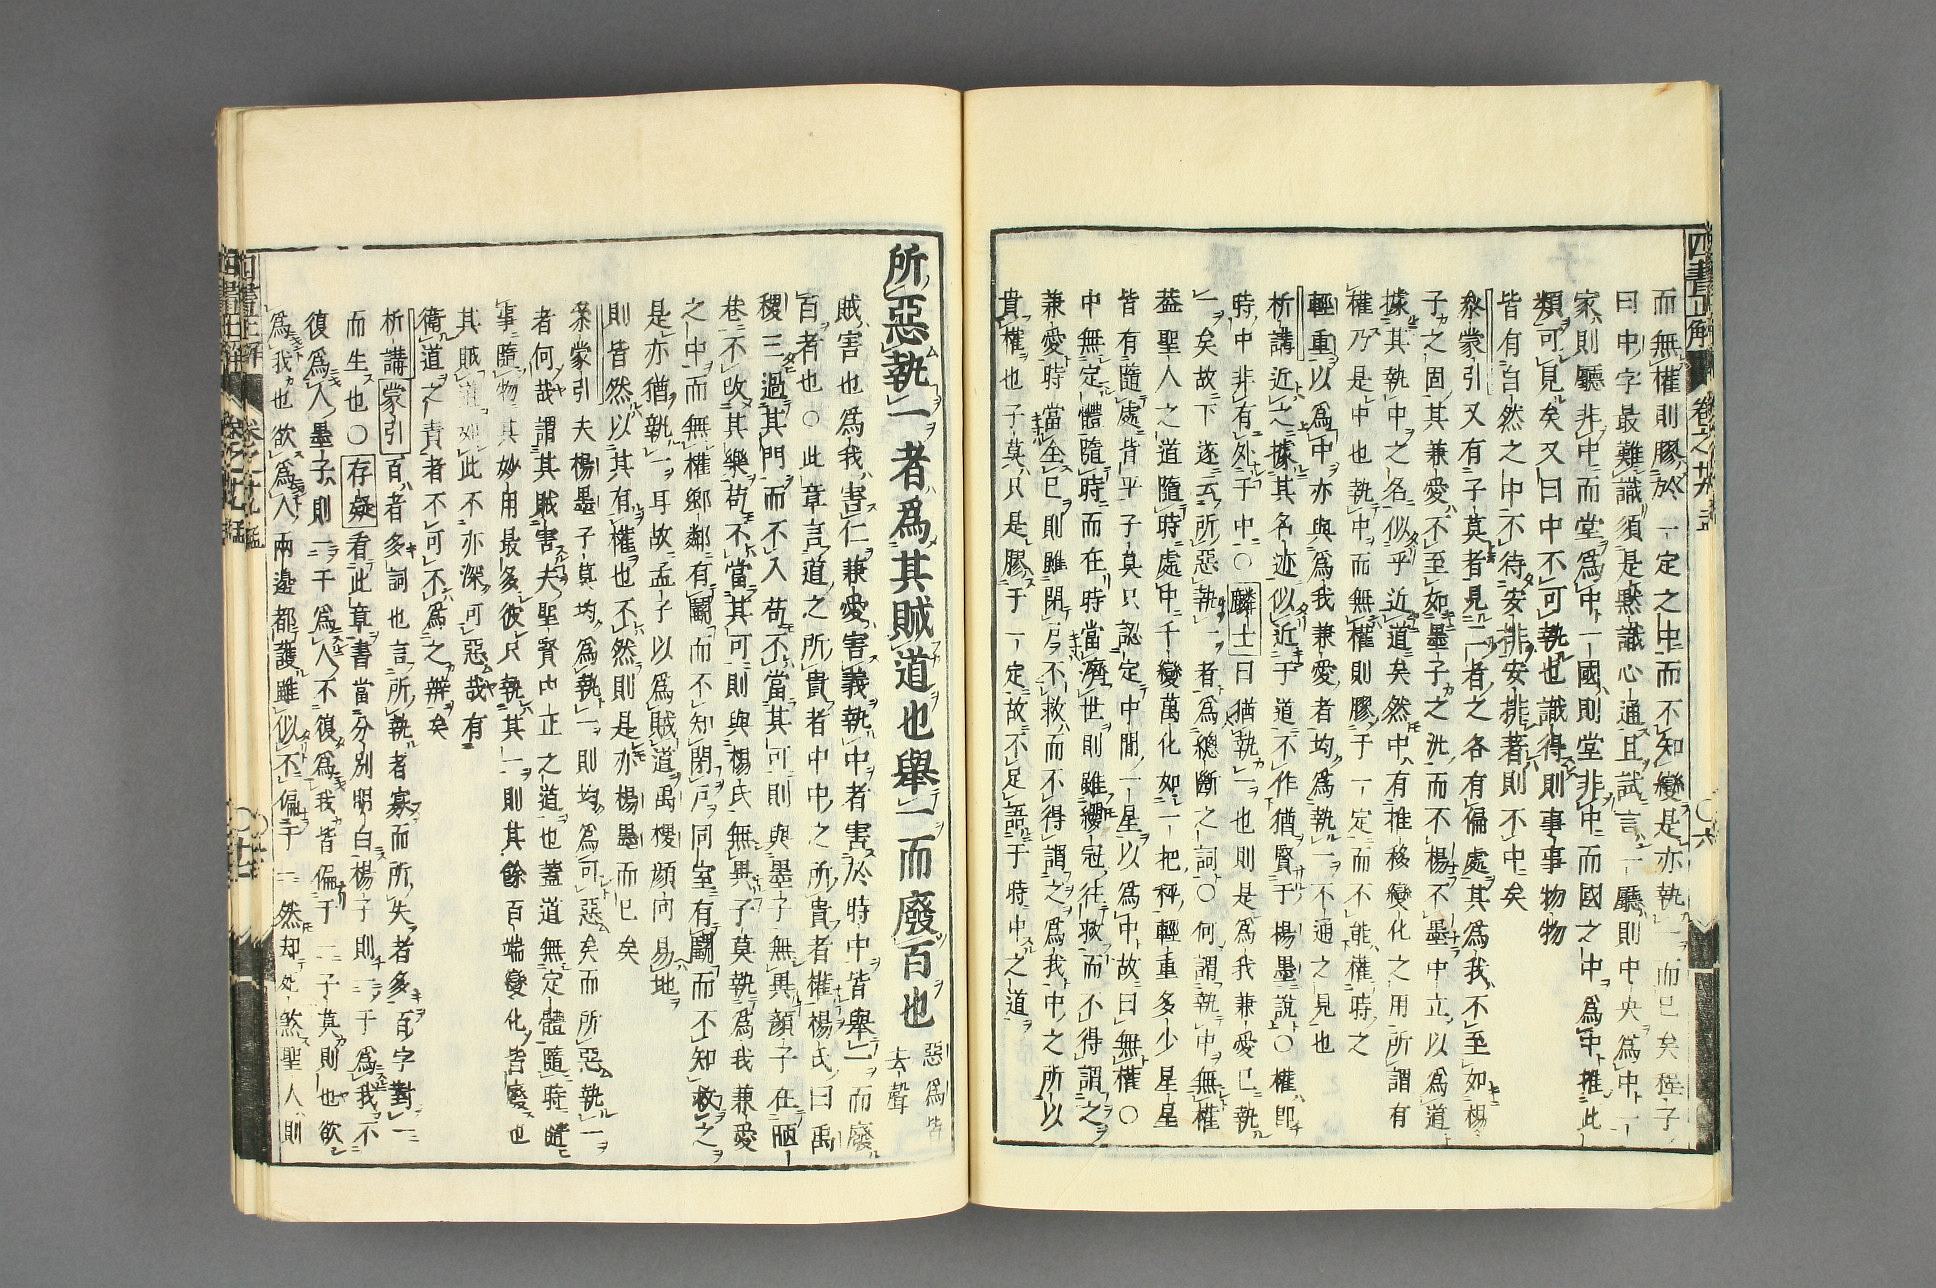 四書正解 卷之廿九 六
而無權則膠於一定之中而不知變是亦執一而已矣程子
曰中字最難識須是默識心通且試言一廳則中央為中一
家則廳非中而堂為中一國則堂非中而國之中為中推此
類可見矣又曰中不可執也識得則事事物物
皆有自然之中不待安排安排著則不中矣
叅蒙引又有子莫者見二者之各有偏處其為我不至如楊
子之固其兼愛不至如墨子之泛而不楊不墨中立以為道
據其執中之名似乎近道矣然中有推移變化之用所謂有
權乃是中也執中而無權則膠于一定而不能權時之
輕重以為中亦與為我兼愛者均為執一不通之見也
析講近之據其名迹似近于道不作猶賢于楊墨說〇權即
時中非有外于中〇麟士曰猶執一也則是為我兼愛已執
一矣故下遂云所惡執一者為總斷之詞〇何謂執中無權
葢聖人之道隨時處中千變萬化如一把秤輕重多少星星
皆有隨處皆平子莫只認定中間一星以為中故曰無權〇
中無定體隨時而在時當濟世則雖纓冠往救而不得謂之
兼愛時當全已則雖閉戸不救而不得謂之為我中之所以
貴權也子莫只是膠于一定故不足語于時中之道
所惡執一者為其賊道也舉一而廢百也 惡為皆去聲
賊害也為我害仁兼愛害義執中者害於時中皆舉一而廢
百者也〇此章言道之所貴者中中之所貴者權楊氏曰禹
稷三過其門而不入苟不當其可則與墨子無異顏子在陋
巷不改其樂苟不當其可則與楊氏無異子莫執為我兼愛
之中而無權鄉鄰有鬭而不知閉戸同室有鬭而不知救之
是亦猶執一耳故孟子以為賊道禹稷顏囘易地
則皆然以其有權也不然則是亦楊墨而已矣
叅蒙引夫楊墨子莫均為執一則均為可惡矣而所惡執一
者何哉謂其賊害夫聖賢中正之道也蓋道無定體隨時隨
事隨物其妙用最多彼只執其一則其餘百端變化皆廢也
其賊道如此不亦深可惡哉有
衛道之責者不可不為之辨矣
析講蒙引百者多詞也言所執者寡而所失者多百字對一
而生也〇存疑看此章書當分別明白楊子則一于為我不
復為人墨子則一于為人不復為我皆偏于一子莫則也欲
為我也欲為人兩邊都護雖似不偏于一然却處煞聖人則